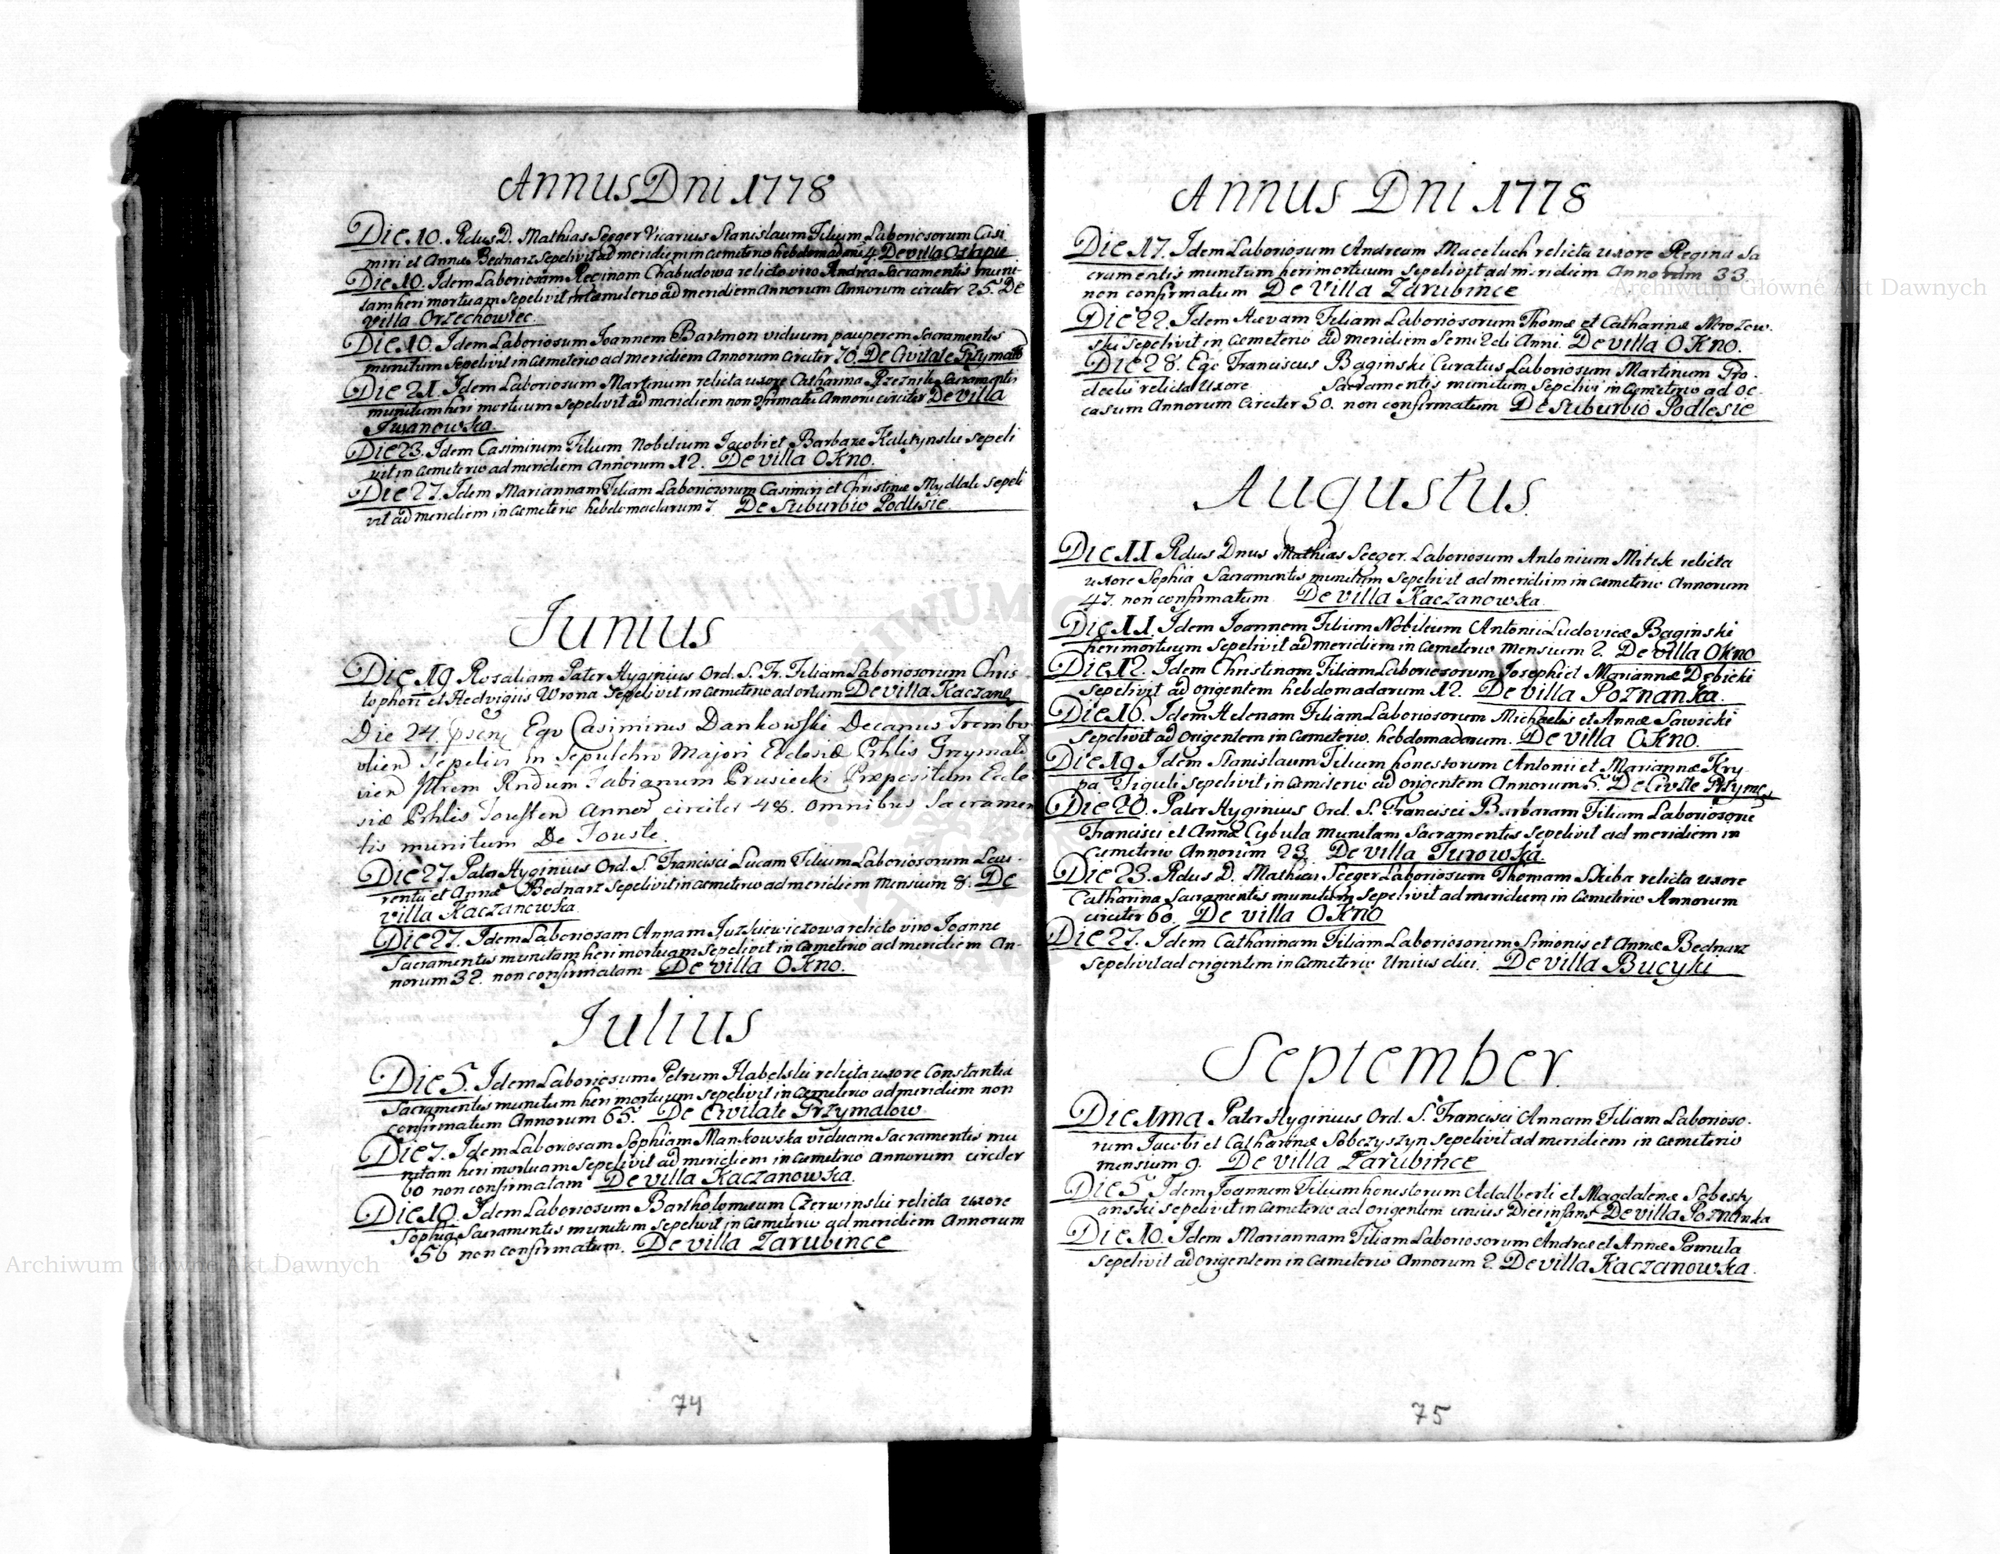 Annus Dni 1778
Die 10. Rdus D. Mathias Seeger Vicarius Stanislaum Filium Laboriosorum Casi
miri et Annæ Bednarz Sepelivit ad meridiem in cæmeterio hebdomadum 4 De villa Ostapie
Die 10. Idem Laboriosam Reginam Chabudowa relicto viro Andrea Sacramentis muni-
tam heri mortuam Sepelivit in Cæmeterio ad meridiem Annorum Annorum circiter 25. De
Villa Orzechowiec.
Die 10. Idem Laboriosum Joannem Bartmon viduum pauperem Sacramentis
munitum Sepelivit in Cæmeterio ad meridiem Annorum Circiter 70. De Civitate Grzymało
Die 21. Idem Laboriosum Martinum relicta uxore Catharina Rzeznik Sacramentis
munitum heri mortuum Sepelivit ad meridiem non firmatu Annorum circiter De villa
Turanowska.
Die 23. Idem Casimirum Filium Nobilium Jacobi et Barbaræ Kaliżynskie sepeli
vit in Cæmeterio ad meridiem Annorum 12. De villa Okno.
Die 27. Idem Mariannam Filiam Laboriosorum Casimiri et Christinæ Mydlak sepeli
vit ad meridiem in Cæmeterio hebdomadarum 7 De Suburbio Podlesie.
Junius
Die 19 Rosaliam Pater Hyginius Ord. S. Fr. Filiam Laboriosorum Chris
tophori et Hedvigiis Wrona Sepelivit in Cæmeterio ad ortum De villa Kaczano
Die 24. Ego Casimirus Dankowski Decanus Trembo
vlien Sepelivi in Sepulchro Majori Ecclesiæ Pchlis Grzymalo
vien Rndum Fabianum Prusiecki Præpositum Eccle
siæ Pchlis Tousten Annor circiter 48. omnibus Sacramen
tis munitum De Touste.
Die 27. Pater Hyginius Ord. S. Francisci Lucam Filium Laboriosorum Lau-
rentii et Annæ Bednarz Sepelivit in Cæmeterio ad meridiem Mensium 8. De
villa Kaczanowska
Die 27. Idem Laboriosam Annam Juzkiewiczowa relicto viro Joanne
Sacramentis munitam heri mortuam Sepelivit in Cæmeterio ad meridiem An-
norum 32. non confirmatam De villa Okno.
Julius
Die 5. Idem Laboriosum Petrum Habelski relicta uxore Constantia
Sacramentis munitum heri mortuum Sepelivit in Cæmeterio ad meridiem non
confirmatum Annorum 65. De Civitate Grzymalow.
Die 7. Idem Laboriosam Sophiam Mankowska viduam Sacramentis mu
nitam heri mortuam Sepelivit ad meridiem in Cæmeterio Annorum circiter
60 non confirmatam De villa Kaczanowska.
Die 10. Idem Laboriosum Bartholomæum Czerwinski relicta uxore
Sophia Sacramentis munitum Sepelivit in Cæmeterio ad meridiem Annorum
56 non confirmatum. De villa Zarubince
74
Annus Dni 1778
Die 17. Idem Laboriosum Andream Maceluch relicta uxore Regina Sa
cramentis munitum heri mortuum Sepelivit ad meridiem Annorum 33
non confirmatum De Villa Zarubince
Die 22. Idem Hævam Filiam Laboriosorum Thomæ et Catharinæ Mrozow-
ski Sepelivit in Cæmeterio ad meridiem Semi 2di Anni. De villa Okno.
Die 28. Ego Franciscus Baginski Curatus Laboriosum Martinum Pro-
declu relicta Uxore Sacramentis munitum Sepelivi in Cæmeterio ad oc
casum Annorum Circiter 50. non confirmatum De Suburbio Podlesie
Augustus.
Die 11 Rdus Dnus Mathias Seeger. Laboriosum Antonium Mitek relicta
uxore Sophia Sacramentis munitum Sepelivit ad meridiem in Cæmeterio Annorum
47. non confirmatum De villa Kaczanowska.
Die 11. Idem Joannem Filium Nobilium Antonii Ludovicæ Baginski
heri mortuum Sepelivit ad meridiem in Cæmeterio Mensium 2 De villa Okno
Die 12. Idem Christinam Filiam Laboriosorum Josephi et Mariannæ Dębicki
Sepelivit ad origentem hebdomadarum 12. De villa Poznanka.
Die 16. Idem Helenam Filiam Laboriosorum Michaelis et Annæ Sawicki
Sepelivit ad Origentem in Cæmeterio. hebdomadarum. De villa Okno.
Die 19 Idem Stanislaum Filium honestorum Antonii et Mariannæ Kry
pa Figuli Sepelivit in Cæmeterio ad origentem Annorum 5. De Civtte Grzyma
Die 20. Pater Hyginius Ord. S. Francisci Barbaram Filiam Laboriosorū
Francisci et Annæ Cybula munitam Sacramentis Sepelivit ad meridiem in
Cæmeterio Annorum 23. De villa Turowska.
Die 23. Rdus D. Mathias Seeger Laboriosum Thomam Skiba relicta uxore
Catharina Sacramentis munitum Sepelivit ad meridiem in Cæmeterio Annorum
circiter 60. De villa Okno
Die 27. Idem Catharinam Filiam Laboriosorum Simonis et Annæ Bednarz
Sepelivit ad origentem in Cæmeterio Unius diei. De villa Bucyki
September.
Die 1ma Pater Hyginius Ord. S. Francisci Annam Filiam Laborioso-
rum Jacobi et Catharinæ Sobczyszyn Sepelivit ad meridiem in cæmeterio
mensium 9. De villa Zarubince
Die 5 Idem Joannem Filium honestorum Adalberti et Magdalenæ Sobesky
anski Sepelivit in Cæmeterio ad origentem unius Diei infans De villa Poznanka
Die 10. Idem Mariannam Filiam Laboriosorum Andreæ et Annæ Pamuła
Sepelivit ad origentem in Cæmeterio Annorum 2. De villa Kaczanowska.
75
Archiwum Główne Akt Dawnych
Archiwum Główne Akt Dawnych